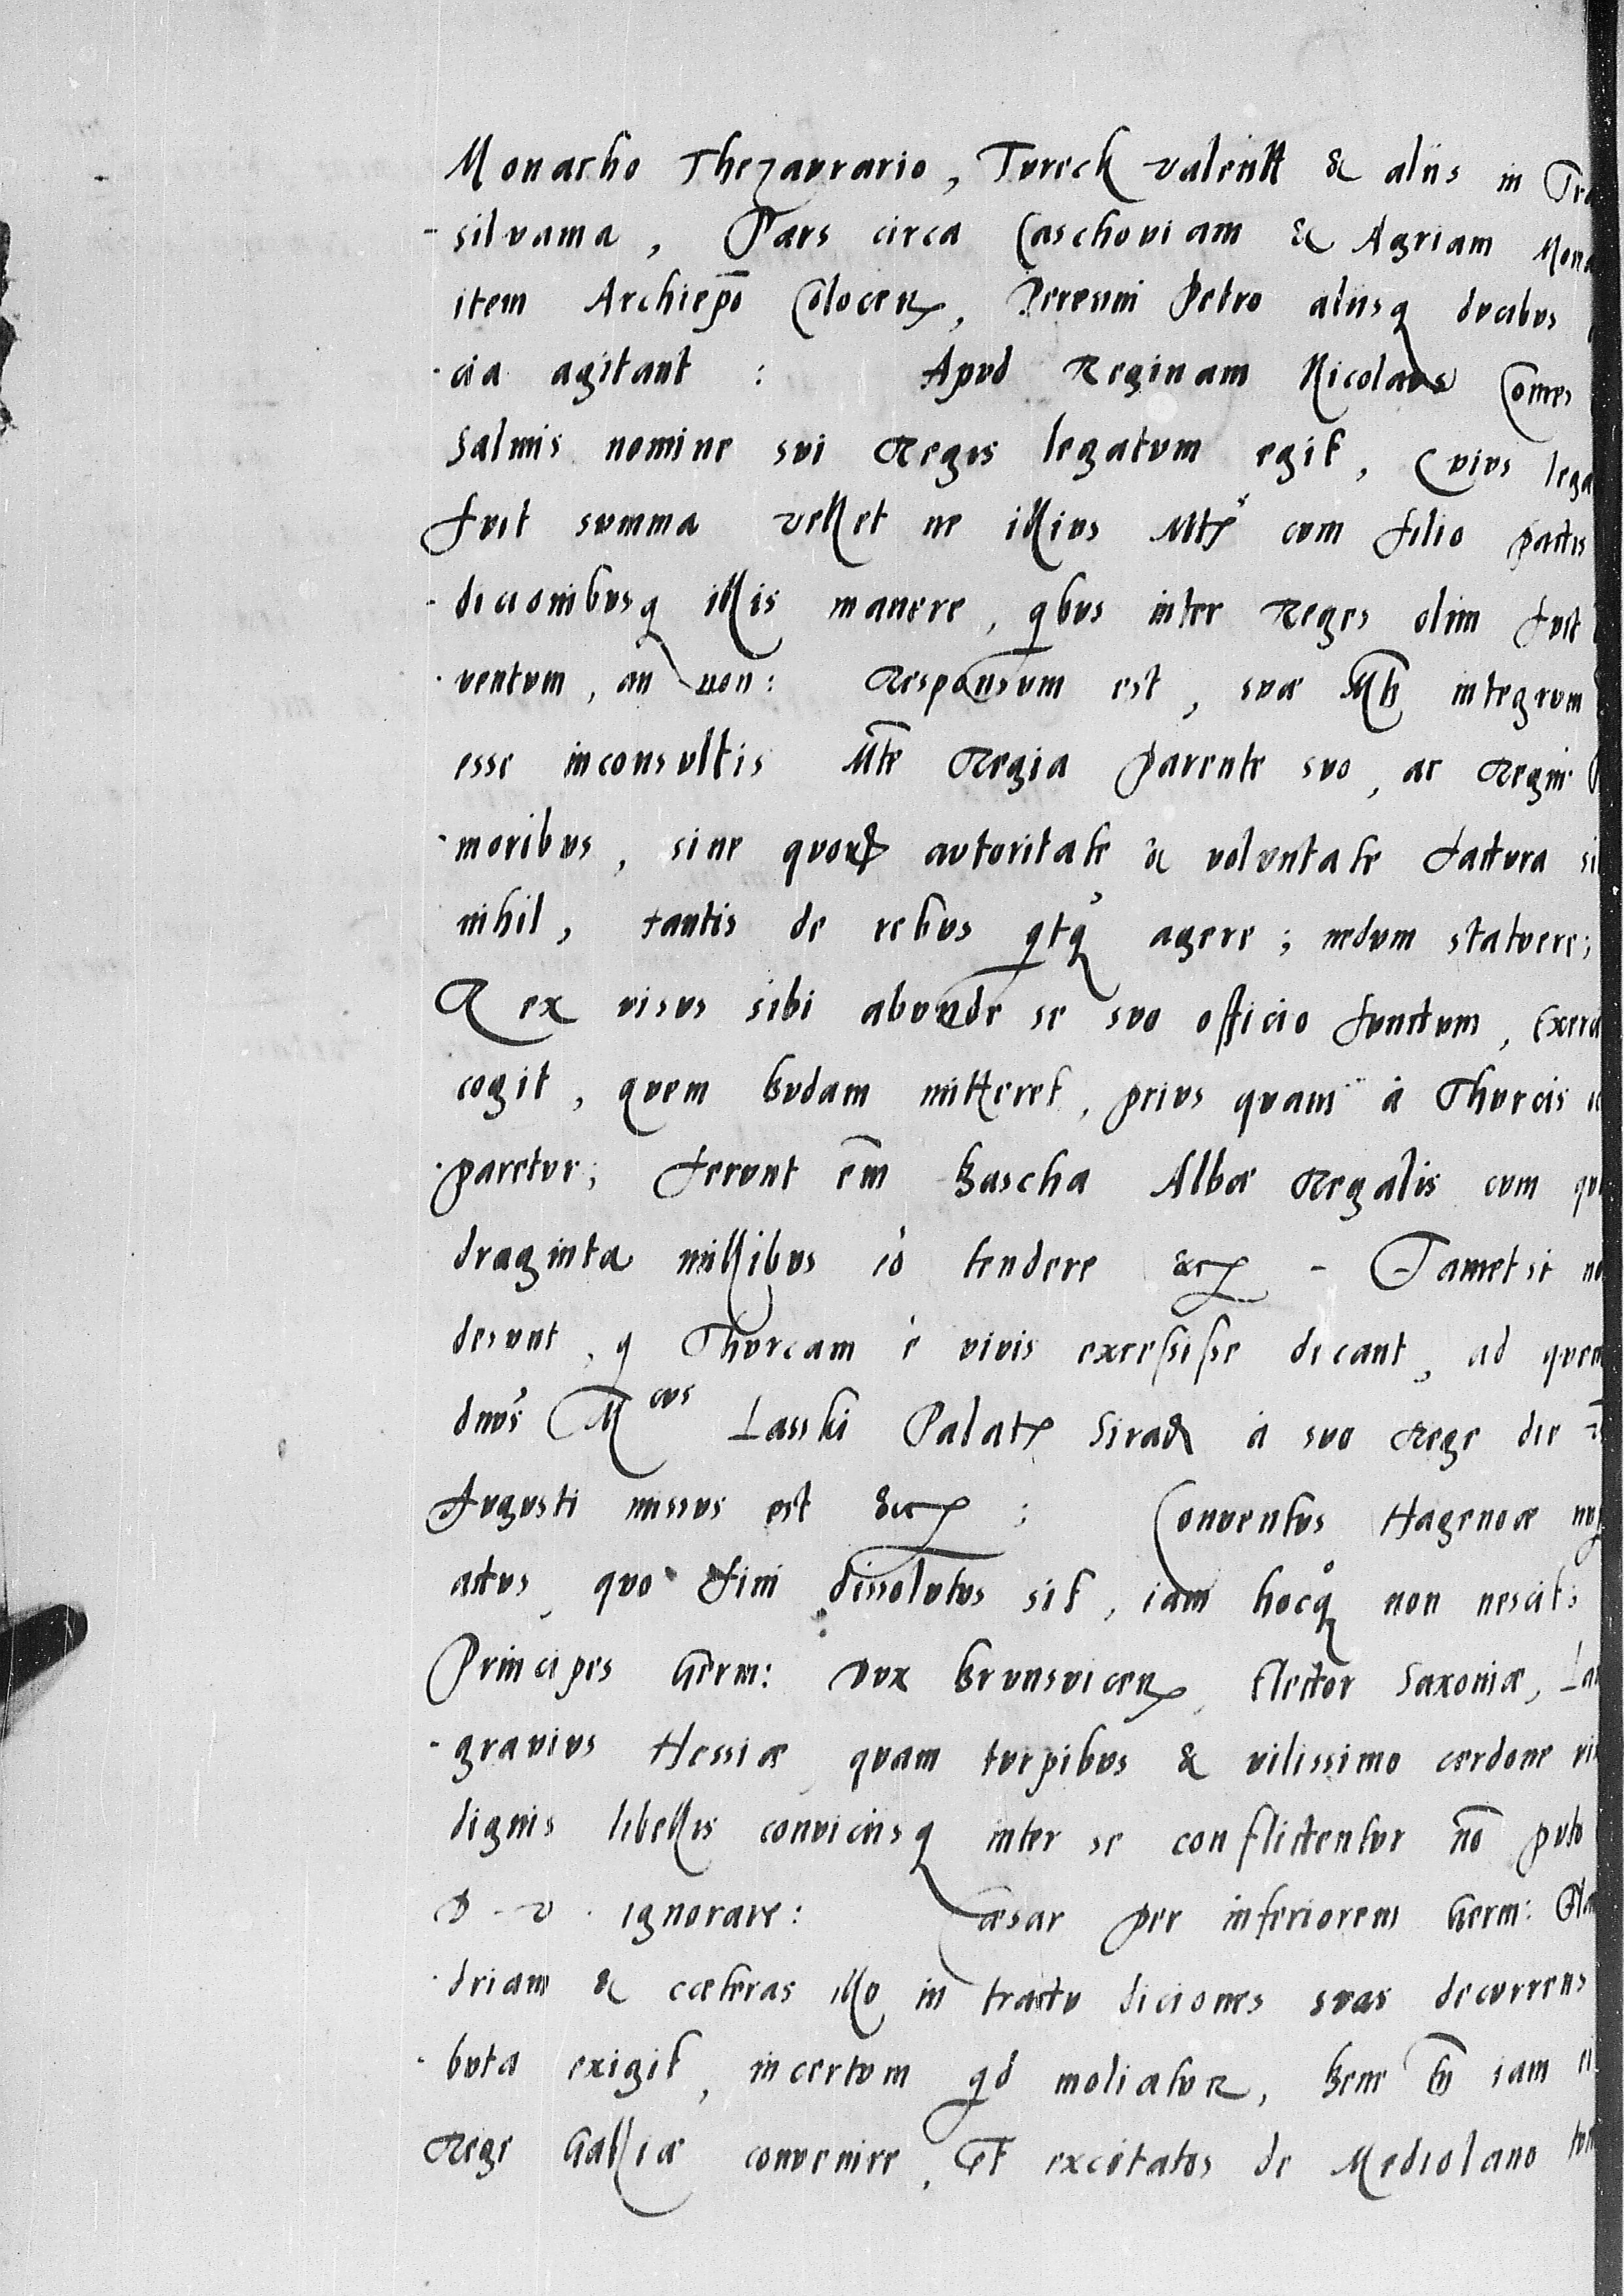 Monacho Thezaurario, Tureck Valentt & aliis in Tra
-siluania, Pars circa Caschouiam & Agriam Mona
item Archiepo Colocen, Perenni Petro aliisq ducibus
-cia agitant : Apud Reginam Nicolaus Comes
Salmis nomine sui Regis legatum egit, Cuius lega
fuit summa vellet ne illius Mtas cum filio pactis
-dicionibusq illis manere, qbus inter Reges olim fuit
-uentum, an non: Responsum est, suæ Mti integrum
esse inconsultis Mte Regia Parente suo, ac Regni
-moribus, sine quorum autoritate & voluntate factura si
nihil, tantis de rebus qtq agere; nedum statuere;
Rex visus sibi abunde se suo officio functum, Exerci
cogit, quem Budam mitteret, prius quam à Thurcis
-paretur; ferunt em Bascha Albæ Regalis cum qua
draginta millibus eò tendere &c - Tametsi no
desunt, q Thurcam è viuis excessisse dicant, ad quem
dnus Mcus Lasski Palat Sirad à suo Rege die
Augusti missus est &c ; Conuentus Hagenoæ nup
actus, quo fini dissolutus sit, iam hocq non nescit:
Principes Germ: Dux Brunsuicen, Elector Saxoniæ, Lan
-grauius Hessiæ quam turpibus & vilissimo cerdone vix
dignis libellis conuiciisq inter se conflictentur no puto
D - V - ignorare: Cæsar per inferiorem Germ: Flan
-driam & cæteras illo in tractu diciones suas decurrens
-buta exigit, incertum qd moliatur, Bene tn iam ei
Rege Galliæ conuenire, et excitatos de Mediolano tum